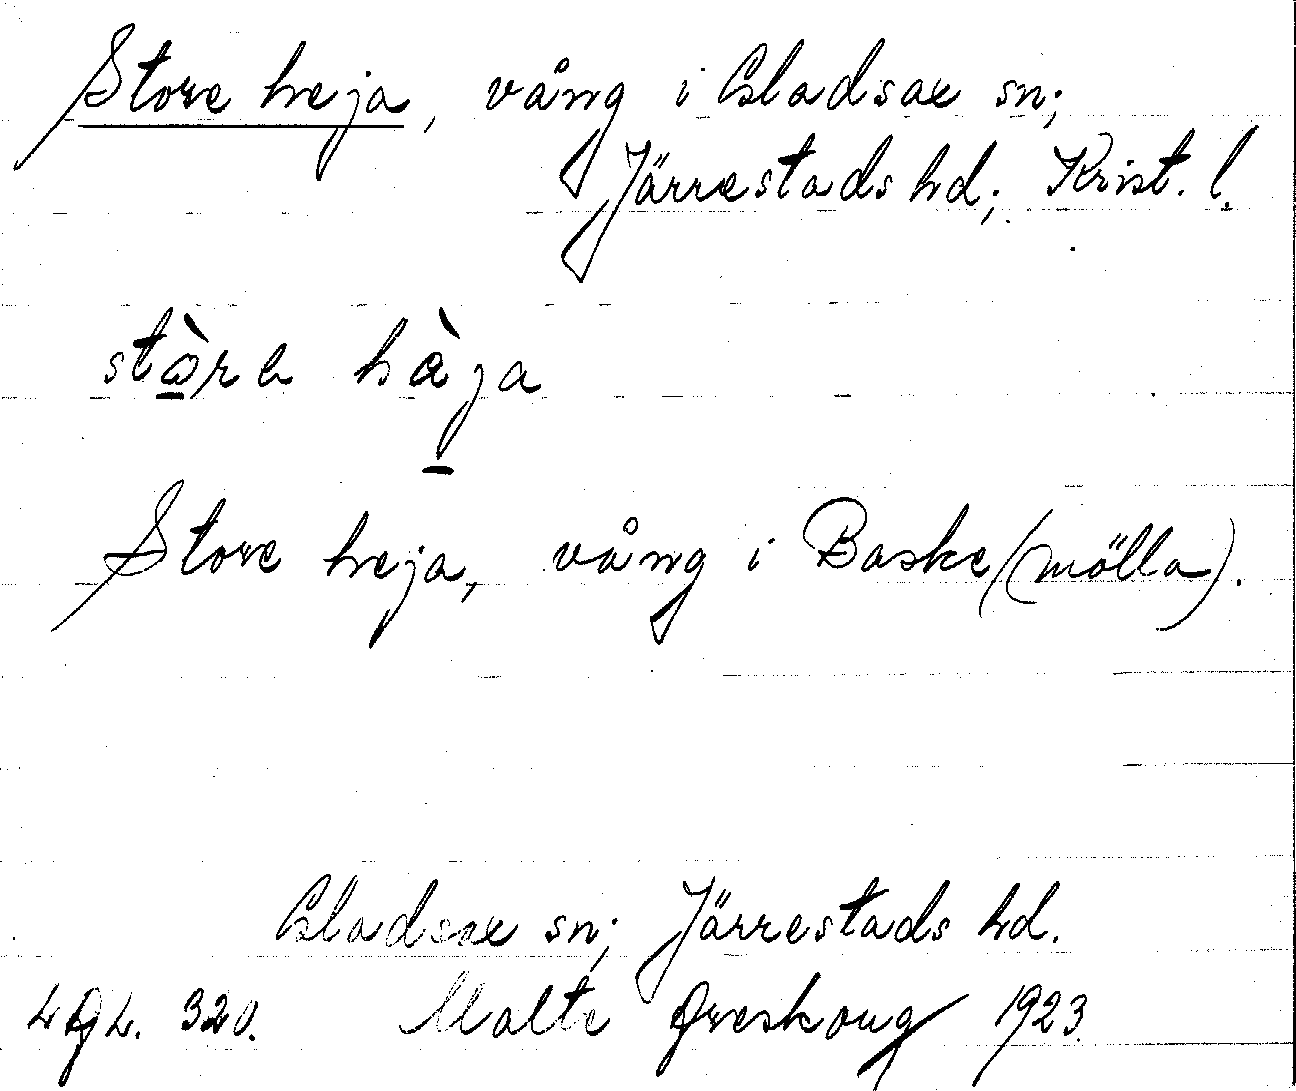 Store heja, vång i Gladsax sn;
Järrestads hd; Krist. l.
stòre hàja
Store heja, vång i Baske(mölla).
Gladsax sn; Järrestads hd.
320. Malte Areskoug 1923.